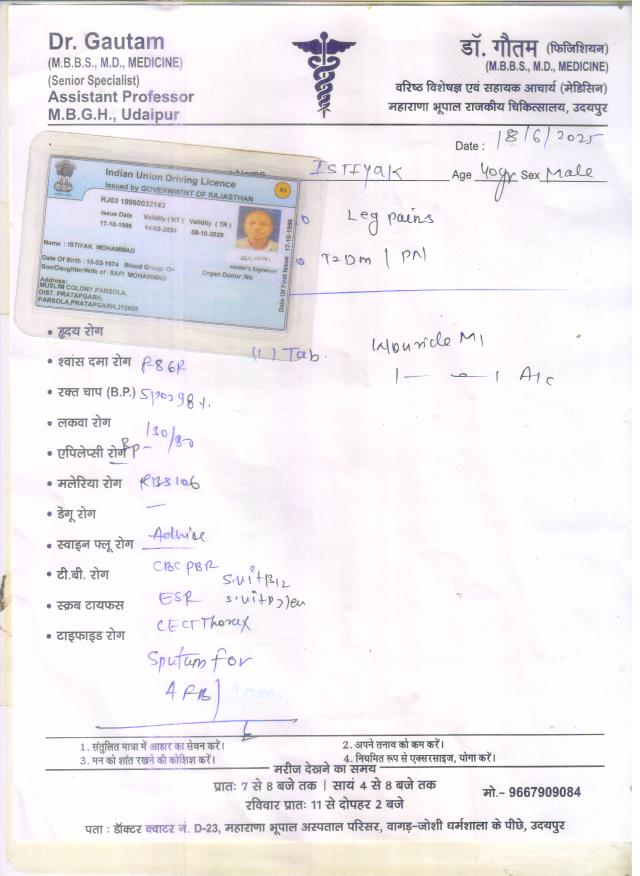 Dr. Gautam
(M.B.B.S., M.D., MEDICINE)
(Senior Specialist)
Assistant Professor
M.B.G.H., Udaipur
डॉ. गौतम (फिजिशियन)
(M.B.B.S., M.D., MEDICINE)
वरिष्ठ विशेषज्ञ एवं सहायक आचार्य (मेडिसिन)
महाराणा भूपाल राजकीय चिकित्सालय, उदयपुर
Date : 18/6/2025
Name ISTIYAK Age 40yr Sex Male
Indian Union Driving Licence
Issued by GOVERNMENT OF RAJASTHAN
RJ
RJ03 19960032143
Issue Date Validity (NT) Validity (TR)
17-10-1996 14-03-2034 08-10-2029
Name : ISTIYAK MOHAMMAD
Holder's Signature
Date Of Birth : 15-03-1974 Blood Group: O+
Organ Donor :No
Son/Daughter/Wife of : SAFI MOHAMMAD
Address:
MUSLIM COLONY PARSOLA,
DIST. PRATAPGARH,
PARSOLA,PRATAPGARH,313605
Date Of First Issue 17-10-1996
Leg pains
T2DM / PN
• हृदय रोग
(1) Tab.
M1
• श्वांस दमा रोग P86R
1— —1 A/c
• रक्त चाप (B.P.) SPO2 98%
• लकवा रोग
130/80
• एपिलेप्सी रोग BP-
• मलेरिया रोग RBS106
• डेंगू रोग
• स्वाइन फ्लू रोग Advise
• टी.बी. रोग CBC PBR
S.vit B12
• स्क्रब टायफस ESR S.vit D3
CECT Thorax
• टाइफाइड रोग
Sputum for
AFB
1. संतुलित मात्रा में आहार का सेवन करें।
2. अपने तनाव को कम करें।
3. मन को शांत रखने की कोशिश करें।
4. नियमित रूप से एक्सरसाइज, योगा करें।
मरीज देखने का समय
प्रातः 7 से 8 बजे तक | सायं 4 से 8 बजे तक
मो.- 9667909084
रविवार प्रातः 11 से दोपहर 2 बजे
पता : डॉक्टर क्वाटर नं. D-23, महाराणा भूपाल अस्पताल परिसर, वागड़-जोशी धर्मशाला के पीछे, उदयपुर